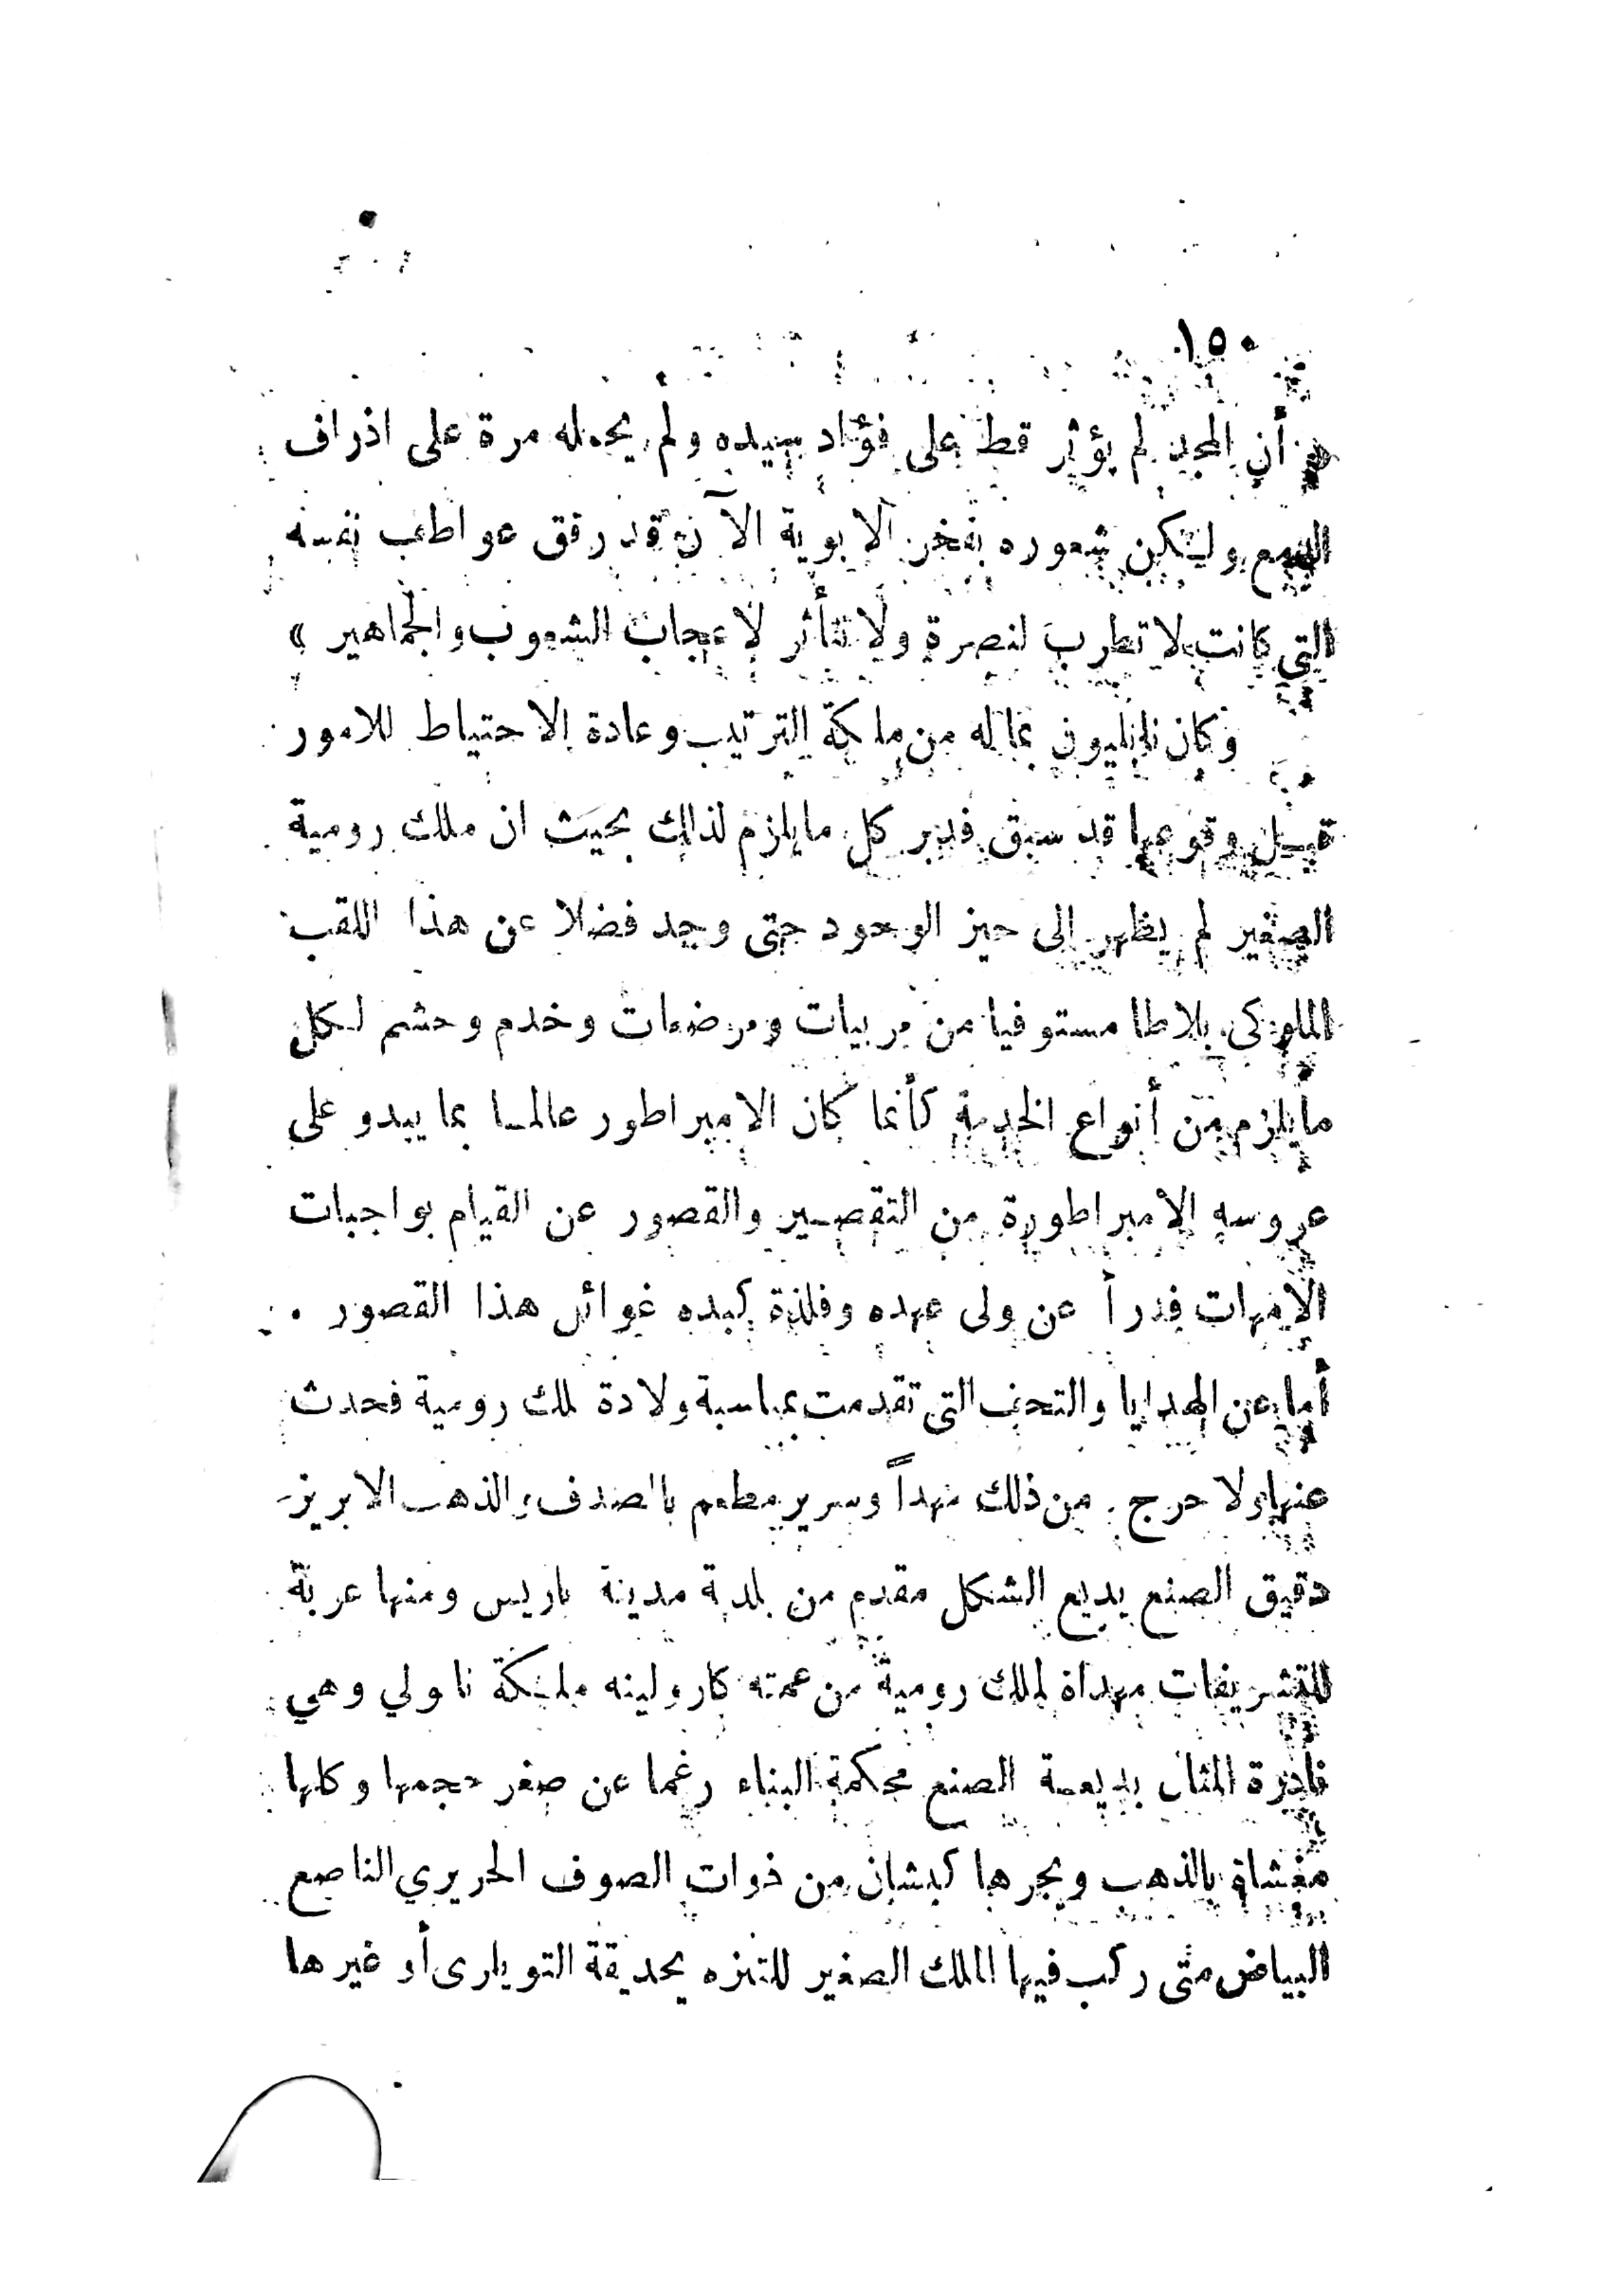 ١٥٠
« أن المجد لم يؤثر قط على فؤاد سيده ولم يحمله مرة على اذراف
الدمع ولكن شعوره بفخر الابوية الآن قد رقق عواطف نفسه
التى كانت لا تطرب لنصرة ولا تتأثر لاعجاب الشعوب والجماهير »
وكان نابليون بماله من ملكة الترتيب وعادة الاحتياط للامور
قبل وقوعها قد سبق فدبر كل مايلزم لذلك بحيث ان ملك رومية
الصغير لم يظهر إلى حيز الوجود حتى وجد فضلا عن هذا اللقب
الملوكى بلاطا مستوفيا من مربيات ومرضعات وخدم وحشم لكل
مايلزم من أنواع الخدمة كأنما كان الامبراطور عالما بما يبدو على
عروسه الامبراطورة من التقصير والقصور عن القيام بواجبات
الامهات فدرأ عن ولى عهده وفلذة كبده غوائل هذا القصور .
أما عن الهدايا والتحف التى تقدمت بمناسبة ولادة ملك رومية فحدث
عنها ولا حرج . من ذلك مهداً وسرير مطعم بالصدف والذهب الابريز
دقيق الصنع بديع الشكل مقدم من بلدية مدينة باريس ومنها عربة
للتشريفات مهداة لملك رومية من عمته كارولينه ملكة نابولي وهي
نادرة المثال بديعة الصنع محكمة البناء رغما عن صغر حجمها وكلها
مغشاة بالذهب ويجرها كبشان من ذوات الصوف الحريري الناصع
البياض متى ركب فيها الملك الصغير للتنزه بحديقة التويلرى أو غيرها